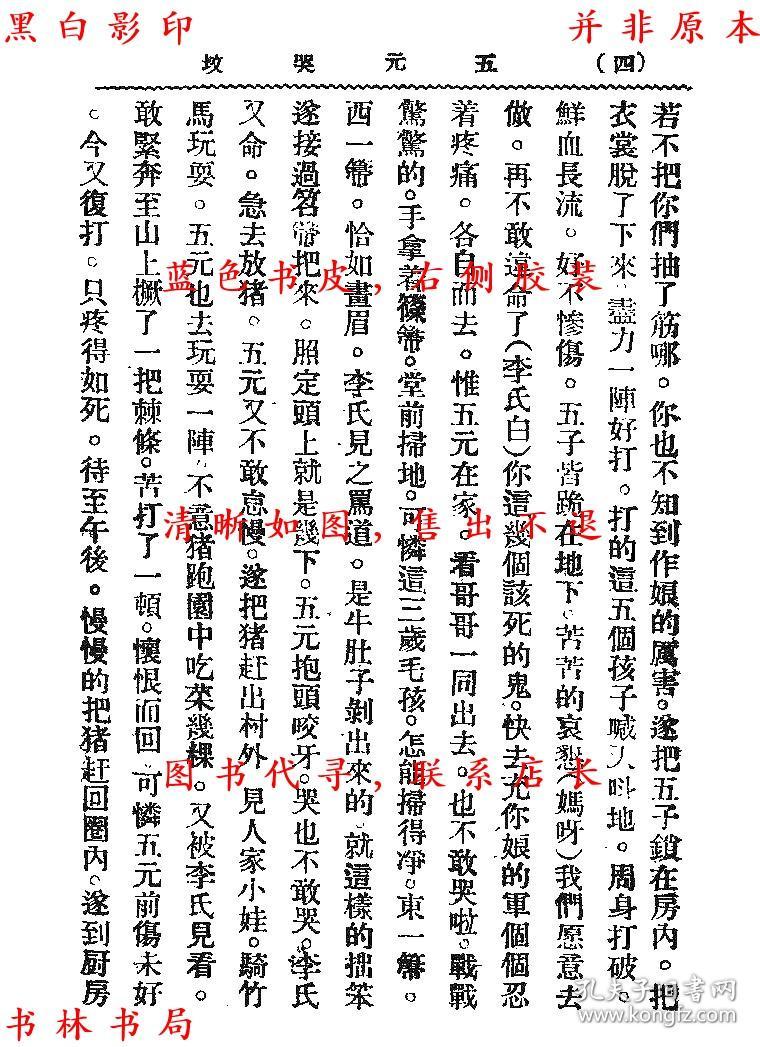 黑白影印
并非原本
（四）
五元哭坟
若不把你們抽了筋哪。你也不知到作娘的厲害。遂把五子鎖在房內。把
衣裳脫了下來。盡力一陣好打。打的這五個孩子喊天叫地。周身打破。
鮮血長流。好不慘傷。五子皆跪在地下。苦苦的哀懇（媽呀）我們愿意去
做。再不敢違命了（李氏白）你這幾個該死的鬼。快去充你娘的軍個個忍
着疼痛。各自而去。惟五元在家。看哥哥一同出去。也不敢哭啦。戰戰
驚驚的。手拿着篠箒。堂前掃地。可憐這三歲毛孩。怎能掃得凈。東一箒。
西一箒。恰如畫眉。李氏見之罵道。是牛肚子剝出來的。就這樣的拙笨
遂接過笤箒把來。照定頭上就是幾下。五元抱頭咬牙。哭也不敢哭。李氏
又命。急去放猪。五元又不敢怠慢。遂把猪赶出村外。見人家小娃。騎竹
馬玩耍。五元也去玩耍一陣。不意猪跑園中吃菜幾棵。又被李氏見看。
敢緊奔至山上橛了一把棘條。苦打了一頓。懷恨而回。可憐五元前傷未好
。今又復打。只疼得如死。待至午後。慢慢的把猪赶回圈內。遂到厨房
蓝色书皮，右侧胶装
清晰如图，售出不退
图书代寻，联系店长
书林书局
孔夫子旧书网
www.kongfz.com